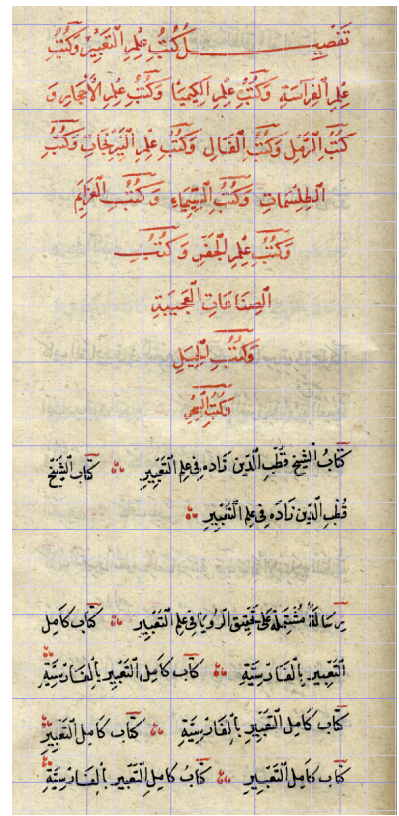 تَفْصِيلُ كُتُبِ عِلْمِ التَّعْبِيْرِ وَكُتُبِ
عِلْمِ الْفِرَاسَةِ وَكُتُبِ عِلْمِ الْكِيْمِيَا وَكُتُبِ عِلْمِ الْأَحْجَارِ وَ
كُتُبِ الرَّمْلِ وَكُتُبِ الْفَالِ وَكُتُبِ عِلْمِ النِّيْرَنْجَاتِ وَكُتُبِ
الطِّلِسْمَاتِ وَكُتُبِ السِّيْمِيَاءِ وَكُتُبِ الْعَزَايِمِ
وَكُتُبِ عِلْمِ الْجَفْرِ وَكُتُبِ
الصِّنَاعَاتِ الْعَجِيْبَةِ
وَكُتُبِ الْحِيَلِ
وَكُتُبِ
كِتَابُ الشَّيْخِ قُطْبِ الدِّيْن زَادَه فِى عِلْمِ التَّعْبِيْرِ كِتَابُ الشَّيْخِ
قُطْبِ الدِّيْن زَادَه فِى عِلْمِ التَّعْبِيْرِ
رِسَالَةٌ مُشْتَمِلَةٌ عَلَى تَحْقِيْقِ الرُّؤْيَا فِى عِلْمِ التَّعْبِيْرِ كِتَاب كَامِل
التَّعْبِيْرِ بِالْفَارْسِيَّةِ كِتَاب كَامِل التَّعْبِيْرِ بِالْفَارْسِيَّةِ
كِتَاب كَامِل التَّعْبِيْرِ بِالْفَارْسِيَّةِ كِتَاب كَامِل التَّعْبِيْرِ
كِتَاب كَامِل التَّعْبِيْرِ كِتَابُ كَامِل التَّعْبِيْرِ بِالْفَارْسِيَّةِ